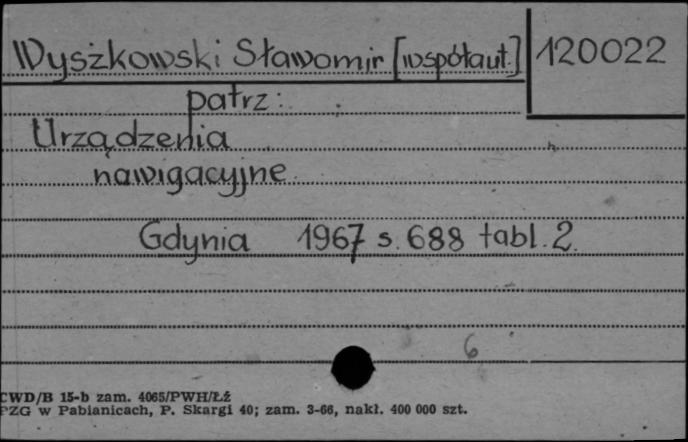 Wyszkowski Sławomir [współaut.] 120022
patrz:
Urządzenia
nawigacyjne
Gdynia 1967 s. 688 tabl. 2.
6
CWD/B 15-b zam. 4065/PWH/Łź
PZG w Pabianicach, P. Skargi 40; zam. 3-66, nakł. 400 000 szt.